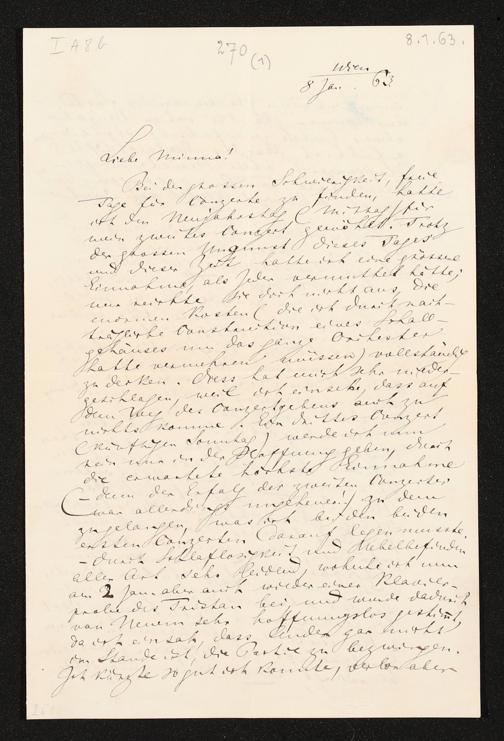 I A 8 b
270
(1)
8.1.63.
Wien
8 Jan. 63
Liebe Minna!
Bei der grossen Schwierigkeit, freie
Tage für Conzerte zu finden, hatte
ich den Neujahrstag (Mittag) für
mein zweites Concert gewählt. Trotz
der grossen Ungunst dieses Tages
und dieser Zeit hatte ich eine grössere
Einnahme, als jeder vermuthet hätte;
nur reichte sie doch nicht aus, die
enormen Kosten (die ich durch nach-
trägliche Construction eines Schall-
gehäuses um das ganze Orchester
hatte vermehren müssen) vollständig
zu decken. Diess hat mich sehr nieder-
geschlagen, weil ich einsehe, dass auf
dem Weg des Conzertgebens auch zu
nichts komme. Ein drittes Conzert
(künftigen Sonntag) werde ich nun
rein nur in der Hoffnung geben, durch
die erwartete höchste Einnahme
(– denn der Erfolg des zweiten Conzertes
war allerdings ungeheuer!) zu dem
zu gelangen, was ich bei den beiden
ersten Conzerten darauf legen musste.
– Durch Schlaflosigkeit und Uebelbefinden
aller Art sehr leidend, wohnte ich nun
am 2 Jan. aber auch wieder einer Klavier-
probe des Tristan bei, und wurde dadurch
von Neuem sehr hoffnungslos gestimmt,
da ich einsah, dass Ander gar nicht
im Stande ist, die Partie zu bezwingen.
Ich kürzte so gut ich konnte, verlor aber